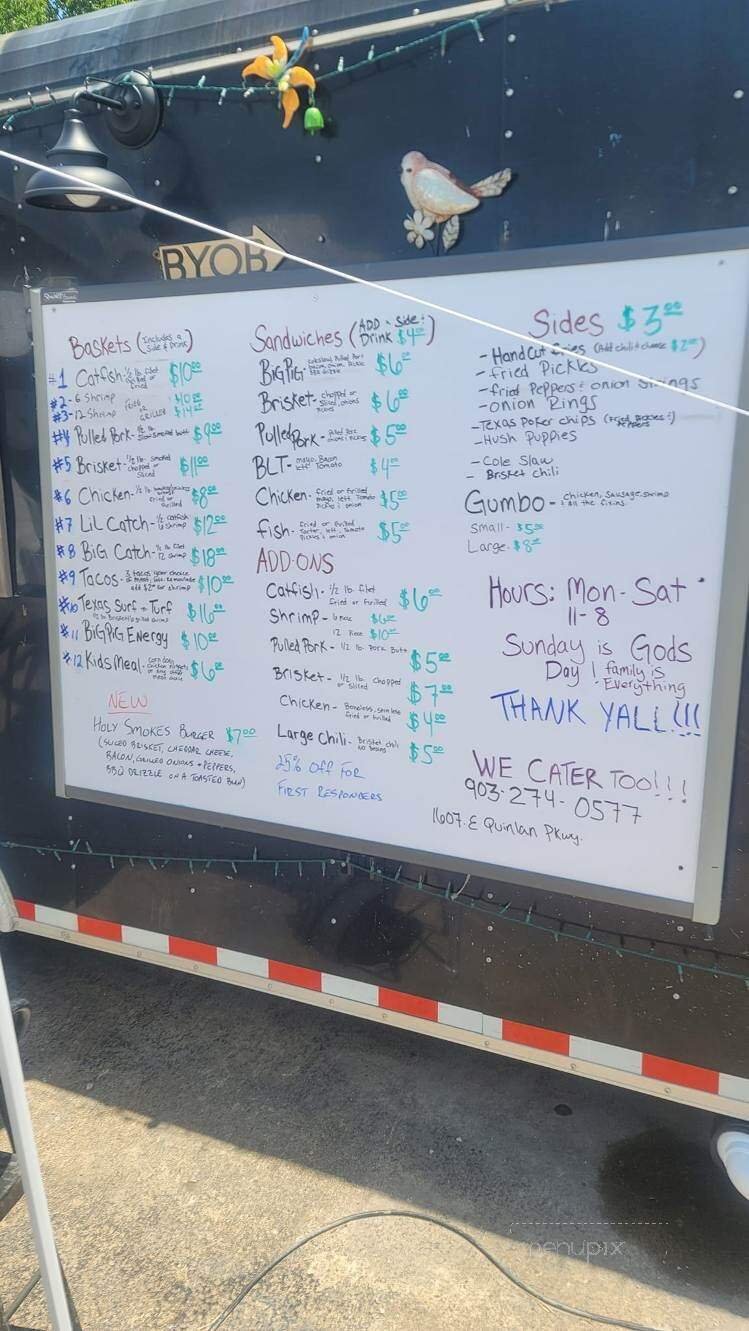 BYOB
Baskets (Includes a
Side & Drink)
#1 Catfish- 1/2 lb filet
grilled or
fried $10.00
#2- 6 Shrimp $10.00
#3- 12 Shrimp fried
or
GRILLED $14.00
#4 Pulled Pork- 1/2 lb $9.00
#5 Brisket- 1/2 lb Smoked
chopped or
Sliced $11.00
#6 Chicken- 1/2 lb
fried or
grilled $8.00
#7 Lil Catch- 1/2 catfish
6 shrimp $12.00
#8 BiG Catch- 1/2 lb filet
12 shrimp $18.00
#9 Tacos- 3 tacos your choice
of meat,
add $2.00 for shrimp $10.00
#10 Texas Surf & Turf
$16.00
#11 BiGPiG Energy $10.00
#12 Kids Meal- corn dog,
chicken nuggets
$6.00
NEW
HOLY SMOKES BURGER $7.00
(SLICED BRISKET, CHEDDAR CHEESE,
BACON, GRILLED ONIONS & PEPPERS,
BBQ DRIZZLE ON A TOASTED BUN)
Sandwiches (ADD- Side &
Drink $4.00)
BiGPiG- coleslaw, Pulled Pork
bacon, onion, Pickle
BBQ drizzle $6.00
Brisket- chopped or
Sliced, onions
Pickles $6.00
Pulled Pork- Pulled Pork
onions & pickles $5.00
BLT- mayo, Bacon
lett, Tomato $4.00
Chicken- fried or grilled
mayo, lett, Tomato
Pickle & onion $5.00
fish- fried or Grilled
Tarter, lett, Tomato
Pickles & onion $5.00
ADD-ONS
Catfish- 1/2 lb filet
fried or grilled $6.00
Shrimp- 6 Piece $6.00
12 Piece $10.00
Pulled Pork- 1/2 lb. Pork Butt $5.00
Brisket- 1/2 lb. chopped
or Sliced $7.00
Chicken- Boneless, skinless
fried or grilled $4.00
Large Chili- Brisket chili
no beans $5.00
25% Off For
FIRST RESPONDERS
Sides $3.00
- Hand Cut fries (Add chili & cheese $2.00)
- fried Pickles
- fried Peppers & onion Strings
- onion Rings
- Texas Poker chips (Fried Pickles &
Peppers)
- Hush Puppies
- Cole Slaw
- Brisket chili
Gumbo- chicken, Sausage, shrimp
& all the fixins.
Small- $5.00
Large- $8.00
Hours: Mon-Sat
11-8
Sunday is Gods
Day & family is
Everything
THANK YALL!!!
WE CATER TOO!!!
903-274-0577
1607 E Quinlan Pkwy.
menupix